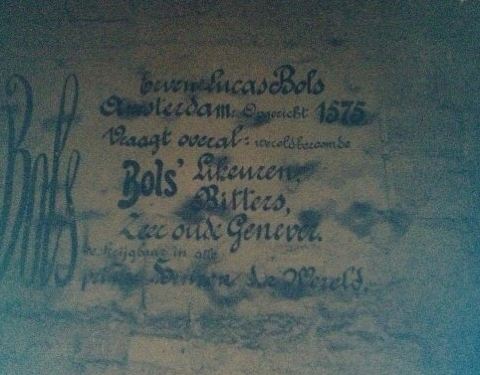 Bols
Erven Lucas Bols
Amsterdam. Opgericht 1575
Vraagt overal: wereldberoemde
Bols' Likeuren,
Bitters,
Zeer oude Genever.
verkrijgbaar in alle
der Wereld.